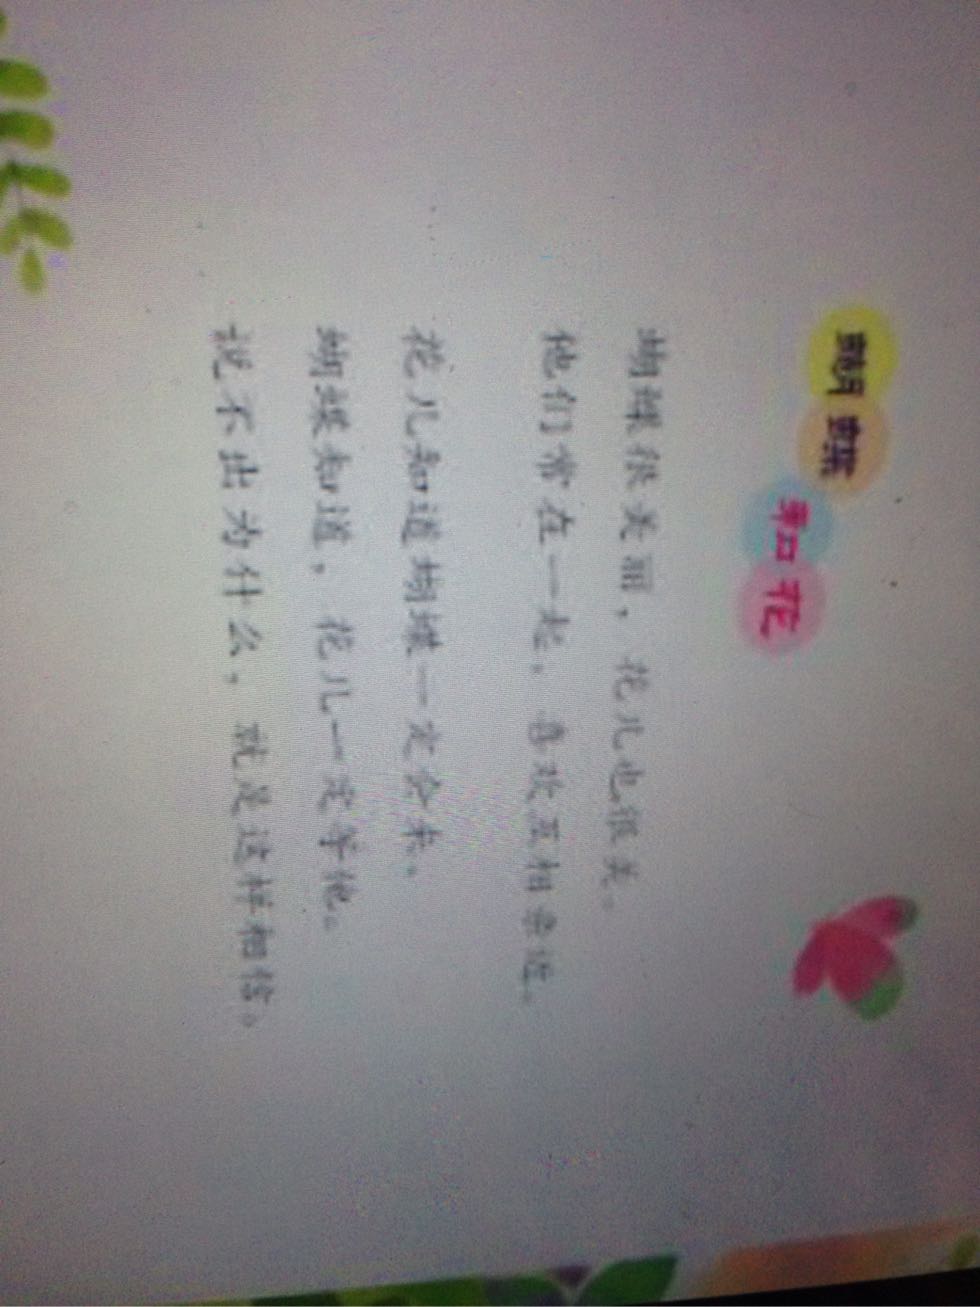 蝴蝶和花
蝴蝶很美丽，花儿也很美。
他们常在一起，喜欢互相亲近。
花儿知道蝴蝶一定会来。
蝴蝶知道，花儿一定等他。
说不出为什么，就是这样相信。